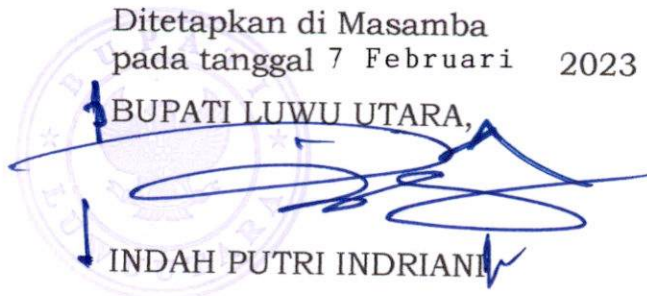 Ditetapkan di Masamba
pada tanggal 7 Februari 2023
BUPATI LUWU UTARA,
INDAH PUTRI INDRIANI
BUPATI
LUWU UTARA